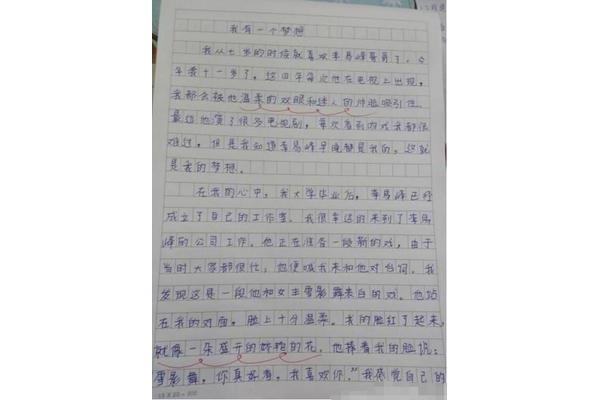 我有一个梦想
我从七岁的时候就喜欢李易峰哥哥了,今
年我十一岁了。这四年每次他在电视上出现,
我都会被他温柔的双眼和迷人的帅脸吸引住。
最近他演了很多电视剧,每次看到吻戏我都很
难过,但是我知道李易峰早晚都是我的,这就
是我的梦想。
在我的心中,我大学毕业后,李易峰已经
成立了自己的工作室。我很幸运的来到了李易
峰的公司工作。他正在准备一段新的戏,由于
当时大家都很忙,他便喊我来和他对台词。我
发现这是一段他和女主雪影舞表白的戏。他站
在我的对面,脸上十分温柔。我的脸红了起来,
就像一朵盛开的娇艳的花。他捧着我的脸说:
雪影舞,你真好看,我喜欢你。”我感觉自己的